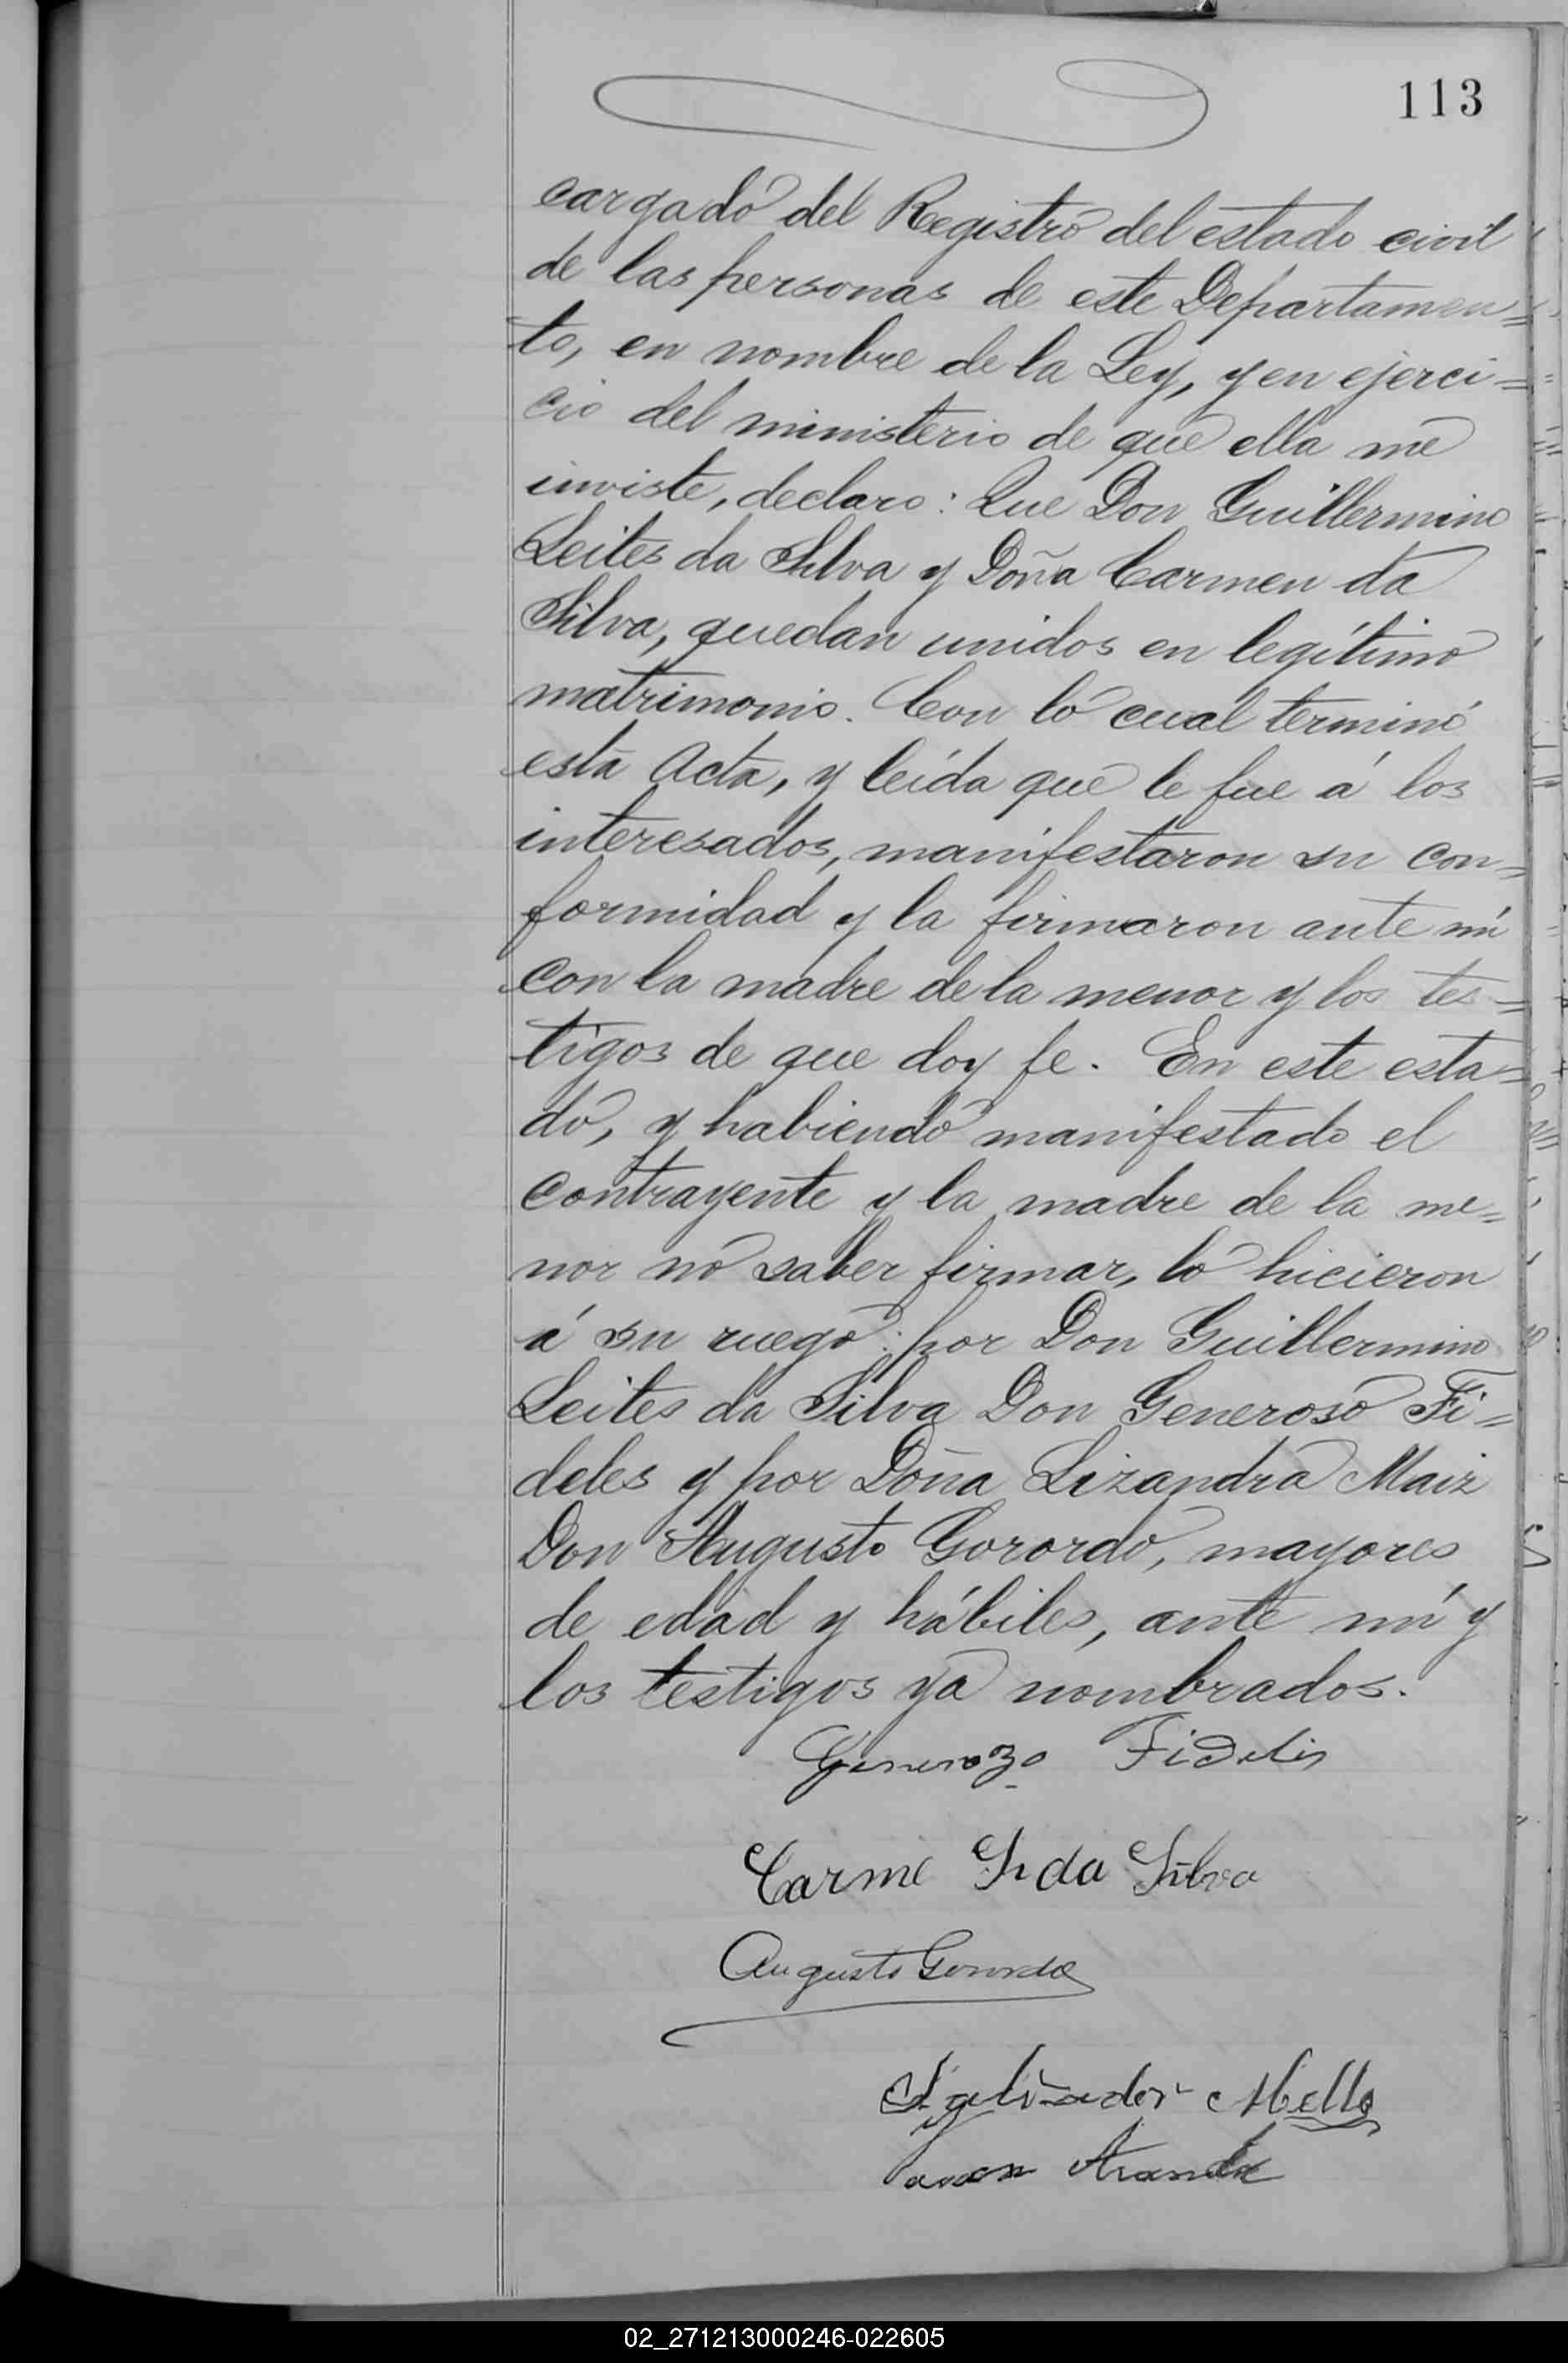 113
cargado del Registro del estado civil
de las personas de este Departamen=
to, en nombre de la Ley, y en ejerci=
cio del ministerio de que ella me
inviste, declaro: Que Don Guillermino
Leites da Silva y Doña Carmen da
Silva, quedan unidos en legítimo
matrimonio. Con lo cual terminó
esta Acta, y leída que le fue á los
interesados, manifestaron su con=
formidad y la firmaron ante mí
con la madre de la menor y los tes=
tigos de que doy fe. En este esta=
do, y habiendo manifestado el
contrayente y la madre de la me=
nor no saber firmar, lo hicieron
á su ruego: por Don Guillermino
Leites da Silva Don Generoso Fi=
deles y por Doña Lizandra Maiz
Don Augusto Gorordo, mayores
de edad y hábiles, ante mí y
los testigos ya nombrados.
Generozo Fidelis
Carme da Silva
Augusto Gorordo
Mello
02_271213000246-022605